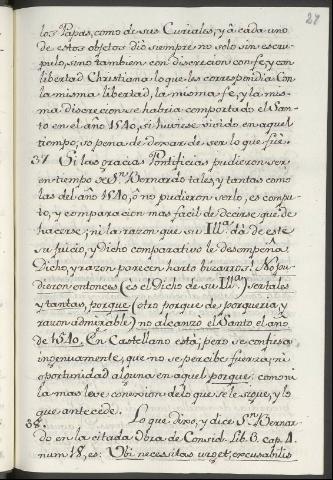 27
los Papas, como de sus Curiales, y à cada uno
de estos objetos dio siempre no solo sin escru-
pulo, sino tambien con discrecion con fe, y con
libertad Christiana lo que les correspondia Con
la misma libertad, la misma fe, y la mis-
ma discrecion se habria comportado el San-
to en el año 1540, si huviese vivido en aquel
tiempo, so pena de dexar de ser lo que fuè.
37 Si las gracias Pontificias pudieron ser,
en tiempo de Sn. Bernardo tales, y tantas como
las del año 1540, ò no pudieron serlo, es compu-
to, y comparacion mas facil de decirse que de
hacerse; ni la razon que su Illma. dà de este
su juicio, y Dicho comparativo le desempeña.
Dicho, y razon parecen harto bizarros. No pu-
dieron entonces (es el Dicho de su Illma.) ser tales
y tantas, porque (otro porque de porqueria, y
razon admirable) no alcanzò el Santo el año
de 1540. En Castellano està; pero se confiesa
ingenuamente, que no se percibe fuerza, ni
oportunidad alguna en aquel porque: como ni
la mas leve conexion de lo que se le sigue, y lo
que antecede.
38 Lo que dixo, y dice Sn. Bernar-
do en la citada Obra de Consid. Lib. 3. cap. 4.
num 18, es: Ubi necessitas urget, excusabilis